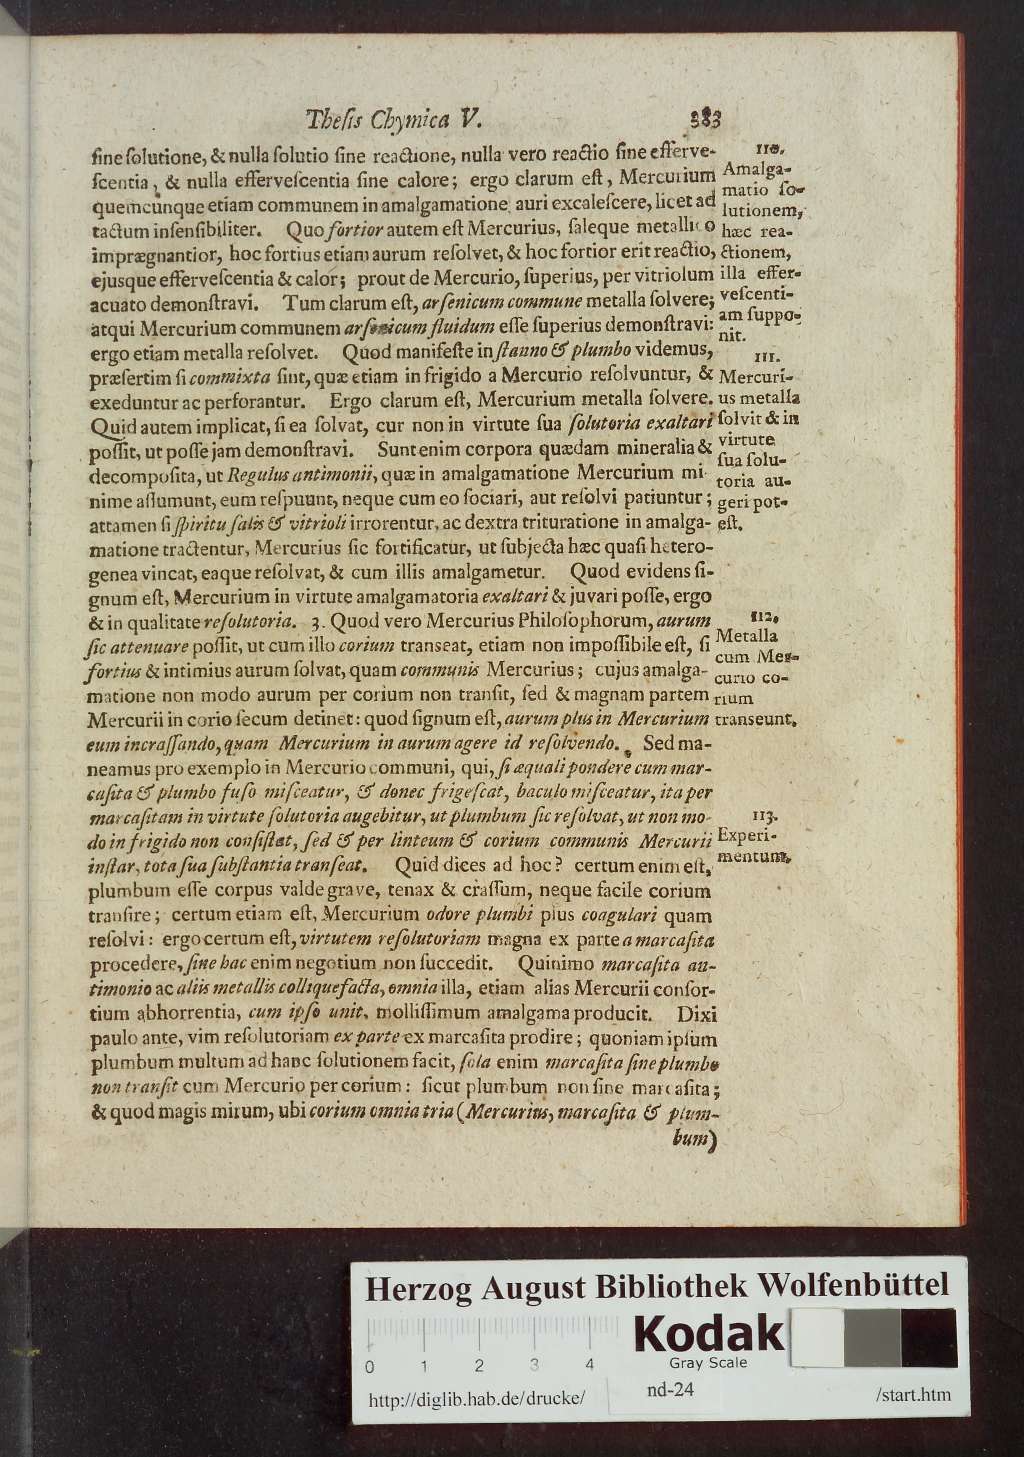 Theſis Chymica V. 383
ſine ſolutione, & nulla ſolutio ſine reactione, nulla vero reactio ſine efferve-
ſcentia, & nulla efferveſcentia ſine calore; ergo clarum eſt, Mercurium
quemcunque etiam communem in amalgamatione auri excaleſcere, licet ad
tactum inſenſibiliter. Quo fortior autem eſt Mercurius, ſaleque metallico
imprægnantior, hoc fortius etiam aurum reſolvet, & hoc fortior erit reactio,
ejusque efferveſcentia & calor; prout de Mercurio, ſuperius, per vitriolum
acuato demonſtravi. Tum clarum eſt, arſenicum commune metalla ſolvere;
atqui Mercurium communem arſenicum fluidum eſſe ſuperius demonſtravi:
ergo etiam metalla reſolvet. Quod manifeſte in ſtanno & plumbo videmus,
præſertim ſi commixta ſint, quæ etiam in frigido a Mercurio reſolvuntur, &
exeduntur ac perforantur. Ergo clarum eſt, Mercurium metalla ſolvere.
Quid autem implicat, ſi ea ſolvat, cur non in virtute ſua ſolutoria exaltari
poſſit, ut poſſe jam demonſtravi. Sunt enim corpora quædam mineralia &
decompoſita, ut Regulus antimonii, quæ in amalgamatione Mercurium mi-
nime aſſumunt, eum reſpuunt, neque cum eo ſociari, aut reſolvi patiuntur;
attamen ſi ſpiritu ſalis & vitrioli irrorentur, ac dextra trituratione in amalga-
matione tractentur, Mercurius ſic fortificatur, ut ſubjecta hæc quaſi hetero-
genea vincat, eaque reſolvat, & cum illis amalgametur. Quod evidens ſi-
gnum eſt, Mercurium in virtute amalgamatoria exaltari & juvari poſſe, ergo
& in qualitate reſolutoria. 3. Quod vero Mercurius Philoſophorum, aurum
ſic attenuare poſſit, ut cum illo corium transeat, etiam non impoſſibile eſt, ſi
fortius & intimius aurum ſolvat, quam communis Mercurius; cujus amalga-
matione non modo aurum per corium non tranſit, ſed & magnam partem
Mercurii in corio ſecum detinet: quod ſignum eſt, aurum plus in Mercurium
eum incraſſando, quam Mercurium in aurum agere id reſolvendo. Sed ma-
neamus pro exemplo in Mercurio communi, qui, ſi æquali pondere cum mar-
caſita & plumbo fuſo miſceatur, & donec frigeſcat, baculo miſceatur, ita per
marcaſitam in virtute ſolutoria augebitur, ut plumbum ſic reſolvat, ut non mo-
do in frigido non conſiſtat, ſed & per linteum & corium communis Mercurii
inſtar, tota ſua ſubſtantia tranſeat. Quid dices ad hoc? certum enim eſt,
plumbum eſſe corpus valde grave, tenax & craſſum, neque facile corium
tranſire; certum etiam eſt, Mercurium odore plumbi plus coagulari quam
reſolvi: ergo certum eſt, virtutem reſolutoriam magna ex parte a marcaſita
procedere, ſine hac enim negotium non ſuccedit. Quinimo marcaſita an-
timonio ac aliis metallis colliquefacta, omnia illa, etiam alias Mercurii conſor-
tium abhorrentia, cum ipſo unit, molliſſimum amalgama producit. Dixi
paulo ante, vim reſolutoriam ex parte ex marcaſita prodire; quoniam ipſum
plumbum multum ad hanc ſolutionem facit, ſola enim marcaſita ſine plumbo
non tranſit cum Mercurio per corium: ſicut plumbum non ſine marcaſita;
& quod magis mirum, ubi corium omnia tria (Mercurius, marcaſita & plum-
bum)
110.
Amalga-
matio ſo-
lutionem,
hæc rea-
ctionem,
illa effer-
veſcenti-
am ſuppo-
nit.
111.
Mercuri-
us metalla
ſolvit & in
virtute
ſua ſolu-
toria au-
geri pot-
eſt.
112.
Metalla
cum Mer-
curio co-
rium
transeunt.
113.
Experi-
mentum.
Herzog August Bibliothek Wolfenbüttel
Kodak
Gray Scale
0 1 2 3 4
http://diglib.hab.de/drucke/ nd-24 /start.htm